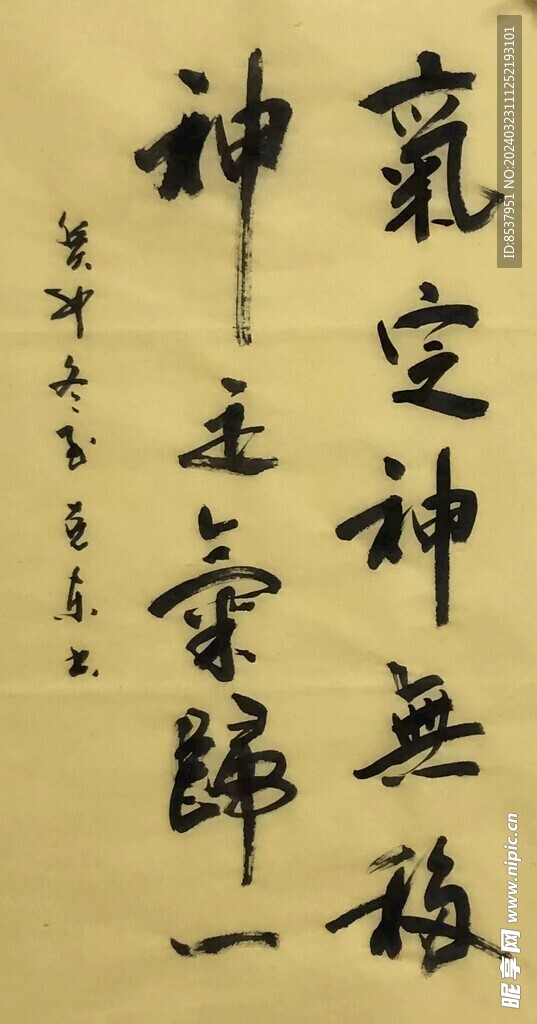 氣定神無移
神正氣歸一
癸卯冬至 克東书
ID:8537951 NO:20240323111252193101
昵享网 www.nipic.cn